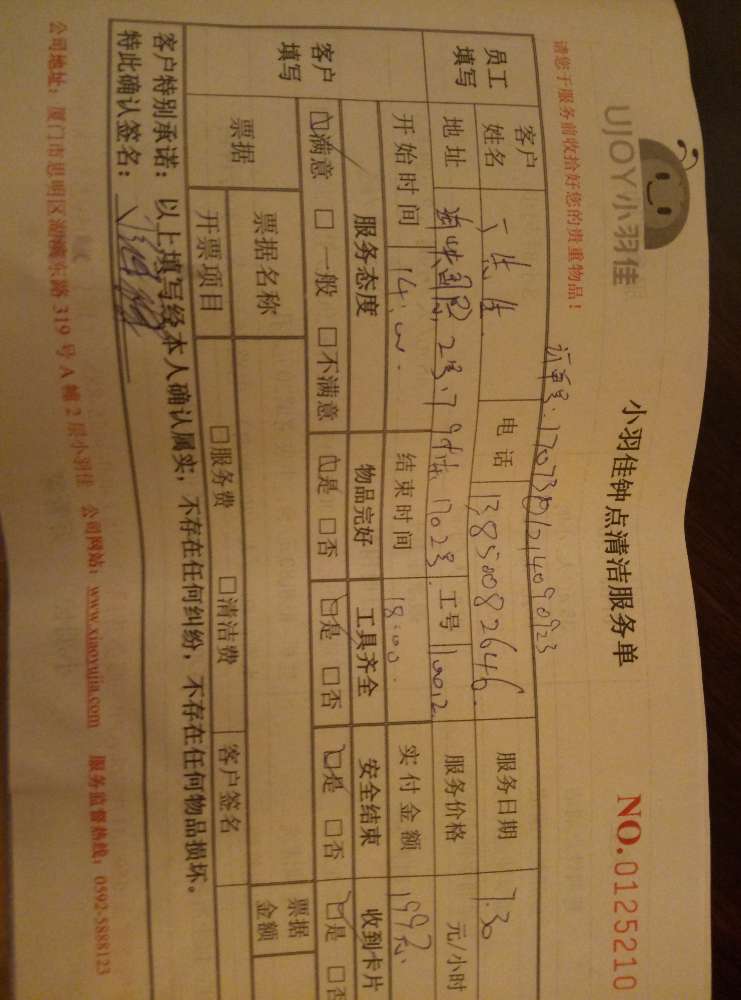 UJOY小羽佳
小羽佳钟点清洁服务单
NO.0125210
请您于服务前收拾好您的贵重物品！
员工填写 客户姓名 电话 13850082646 服务日期 7.30
地址 工号 10012 服务价格 元/小时
开始时间 14:00 结束时间 18:00 实付金额 199元
客户填写 服务态度 物品完好 工具齐全 安全结束 收到卡片
□满意 □一般 □不满意 □是 □否 □是 □否 □是 □否 □是 □否
票据 票据名称 票据金额
开票项目 □服务费 □清洁费 客户签名
客户特别承诺：以上填写经本人确认属实，不存在任何纠纷，不存在任何物品损坏。
特此确认签名：
公司地址：厦门市思明区湖滨东路319号A幢2层小羽佳 公司网站：www.xiaoyujia.com 服务监督热线：0592-5888123